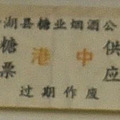 湖县糖业烟酒公
糖票
港中
供应
过期作废